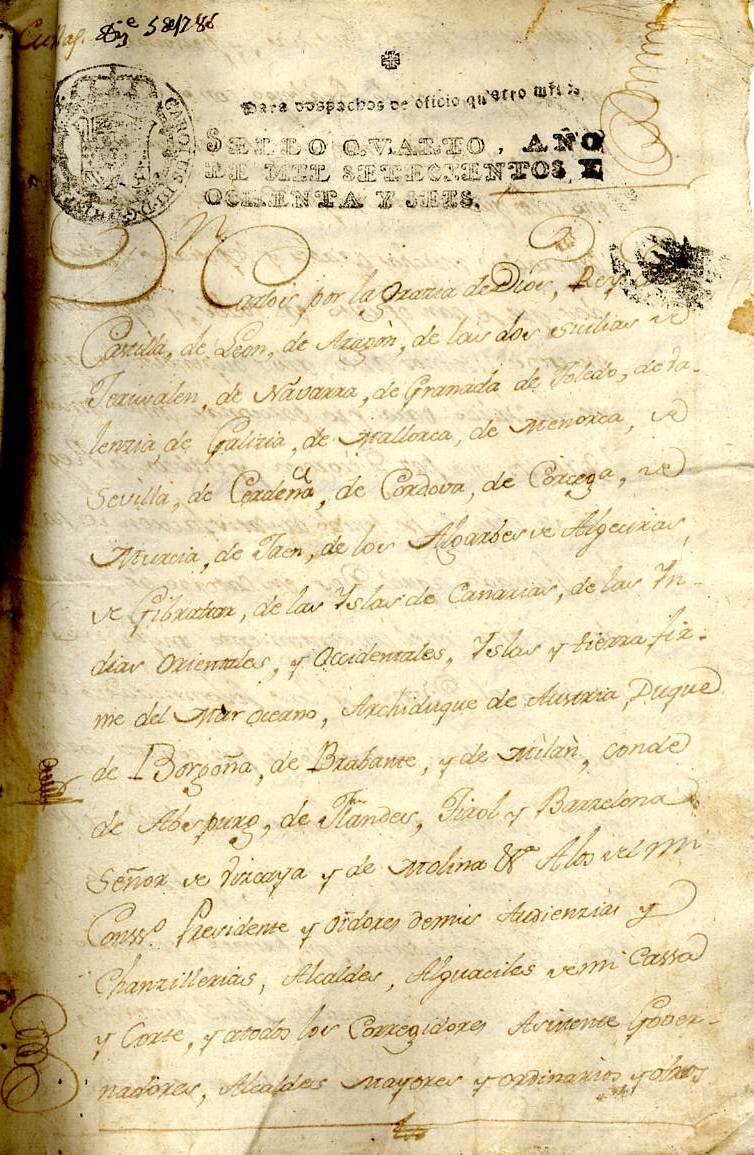 Para despachos de oficio quatro mrs.
SELLO QVARTO, AÑO
DE MIL SETECIENTOS Y
OCHENTA Y SEIS.
CAROLUS III D G
Carlos por la Grazia de Dios, Rey de
Castilla, de Leon, de Aragon, de las dos Sicilias de
Jerusalen, de Navarra, de Granada de Toledo, de Va-
lenzia de Galizia, de Mallorca, de Menorca, de
Sevilla, de Cerdeña, de Cordova, de Corcega, de
Murcia, de Jaen, de los Algarbes de Algeciras,
de Gibraltar, de las Yslas de Canarias, de las Yn-
dias Orientales, y Occidentales, Yslas y tierra fir-
me del Mar Oceano, Archiduque de Austria, Duque
de Borgoña, de Brabante, y de Milan, conde
de Abspurg, de Flandes, Tirol y Barzelona
Señor de Vizcaya y de Molina &a Alos del mi
Conss.o Presidente y Oidores demis Audienzias y
Chanzillerias, Alcaldes, Alguaciles demi Cassa
y Corte, y atodos los Corregidores Asistente Gover-
nadores, Alcaldes mayores y ordinarios y otros